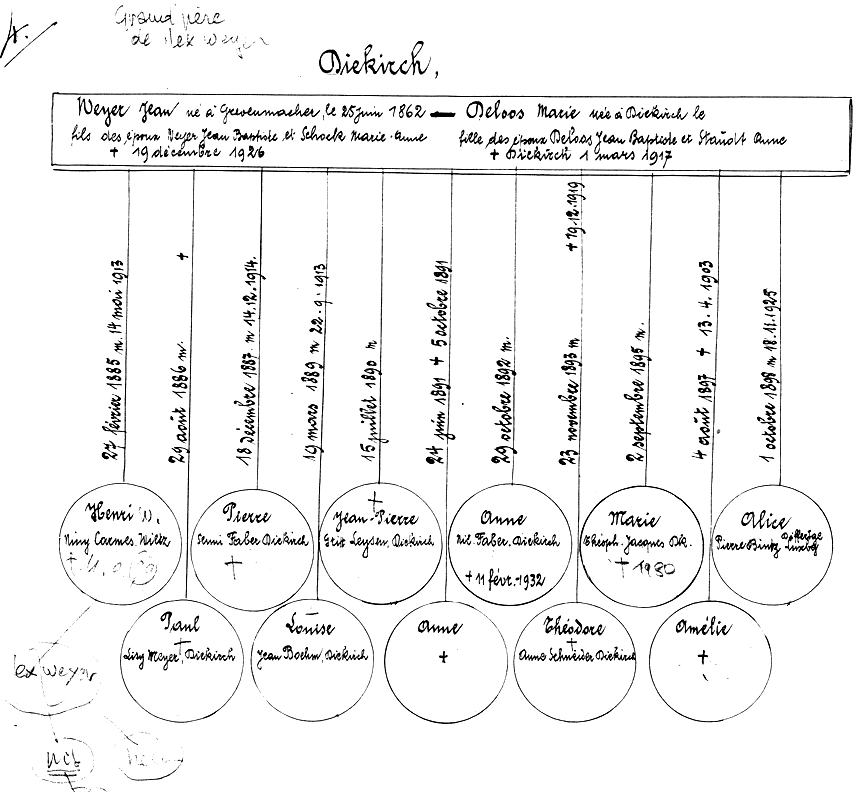 4.
Grand père
de Alex Weyer
Diekirch,
Weyer Jean né à Grevenmacher, le 25 juin 1862 — Deloos Marie née à Diekirch le
fils des époux Weyer Jean Baptiste et Schock Marie-Anne
fille des époux Deloos Jean Baptiste et Staudt Anne
+ 19 décembre 1926
+ Diekirch 1 mars 1917
27 février 1885 m. 14 mai 1913
29 août 1886 m. +
18 décembre 1887. m 14.12.1914.
19 mars 1889 m 22.9.1913
15 juillet 1890 m
24 juin 1891 + 5 octobre 1891
29 octobre 1892 m.
23 novembre 1893 m + 19.12.1919
2 septembre 1895 m.
4 août 1897 + 13.4.1903
1 octobre 1898 m 18.11.1925
Henri
Niny Carmes. Wiltz
+
Pierre
Faber Diekirch
+
+
Jean-Pierre
Leysen, Diekirch
Anne
Nic. Faber. Diekirch
+ 11 févr. 1932
Marie
Théoph. Jacques Dk.
+ 1980
Alice
Pierre Bintz
Paul
+
Lisy Meyer, Diekirch
Louise
Jean Boehm, Diekirch
Anne
+
Théodore
+
Anna Schneider Diekirch
Amélie
+
lex Weyer